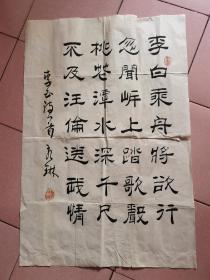 李白乘舟將欲行
忽聞岸上踏歌聲
桃花潭水深千尺
不及汪倫送我情
李白詩一首